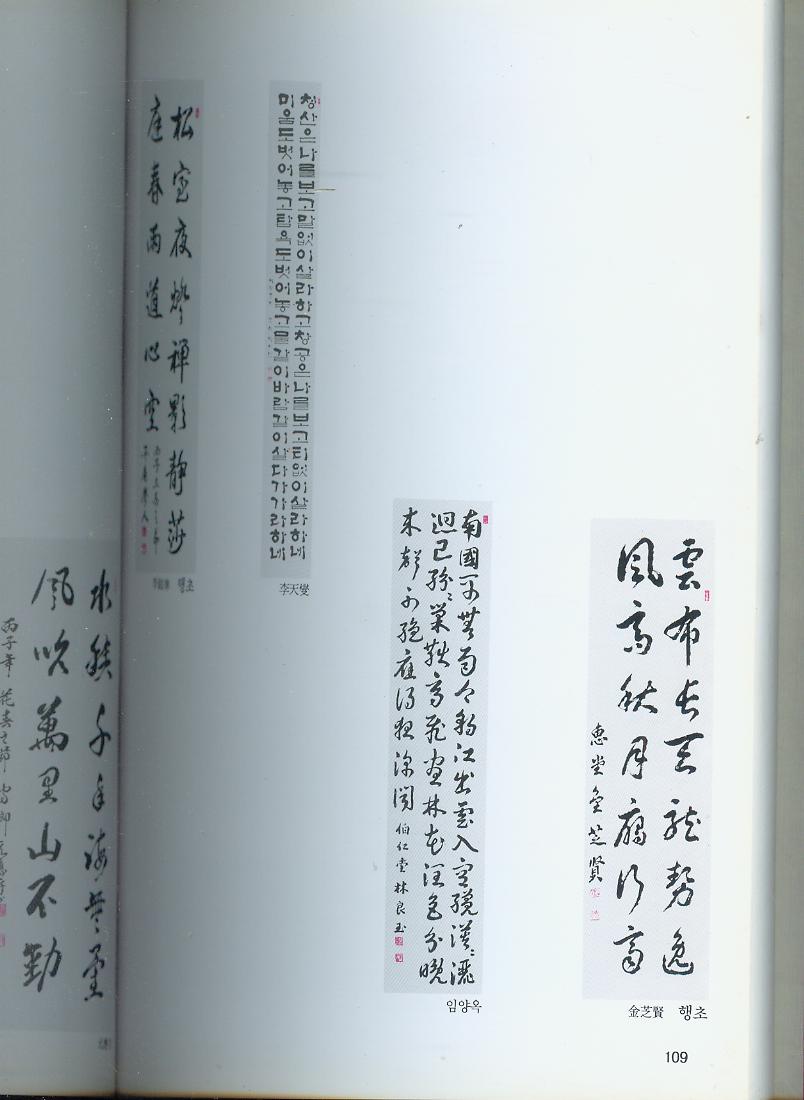 雲布長天龍勢逸
風高秋月雁行齊
惠堂金芝賢
金芝賢 행초
南國旱無雨今朝江出雲入空纔漠漠灑
迥已紛紛巢燕高飛盡林花潤色分晚
來聲不絕應得夜深聞 伯仁堂林良玉
임양옥
청산은나를보고말없이살라하고창공은나를보고티없이살라하네
미움도벗어놓고탐욕도벗어놓고물같이바람같이살다가가라하네
李天燮
松室夜燈禪影靜莎
庭春雨道心空
행초
水積千年海無量
風吹萬里山不動
丙子年花春之節
109